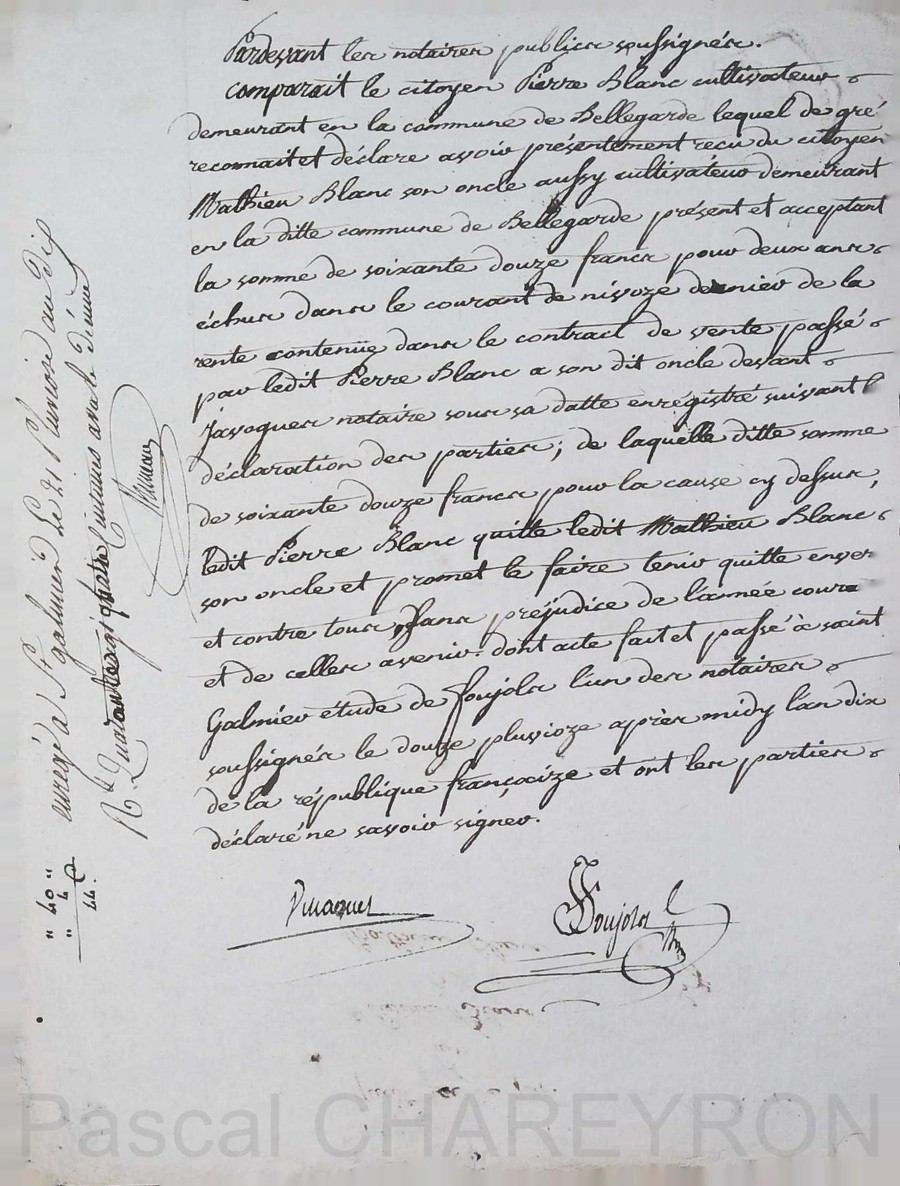 Pardevant les notaires publics soussignés.
comparait le citoyen Pierre Blanc cultivateur
demeurant en la commune de Bellegarde lequel de gré
reconnait et déclare avoir présentement recu du citoyen
Mathieu Blanc son oncle aussy cultivateur demeurant
en la ditte commune de Bellegarde présent et acceptant
la somme de soixante douze francs pour deux ans
échus dans le courant de nivoze dernier de la
rente contenüe dans le contract de vente passé
par ledit Pierre Blanc a son dit oncle devant
Javogues notaire sous sa datte enregistré suivant l
déclaration des parties; de laquelle ditte somme
de soixante douze francs pour la cause cy dessus,
ledit Pierre Blanc quitte ledit Mathieu Blanc
son oncle et promet le faire tenir quitte envers
et contre tous, sans préjudice de l'année coura
et de celles avenir. dont acte fait et passé à saint
Galmier étude de Soujols l'un des notaires
soussignés le douze pluvioze après midy l'an dix
de la république françaize et ont les parties
déclaré ne savoir signer.
Soujols
enregé a St galmier Le 21 Pluviose an Dix
Rt quarante quatre Centimes avec le dixième
" 40 "
" 4
44.
Pascal CHAREYRON